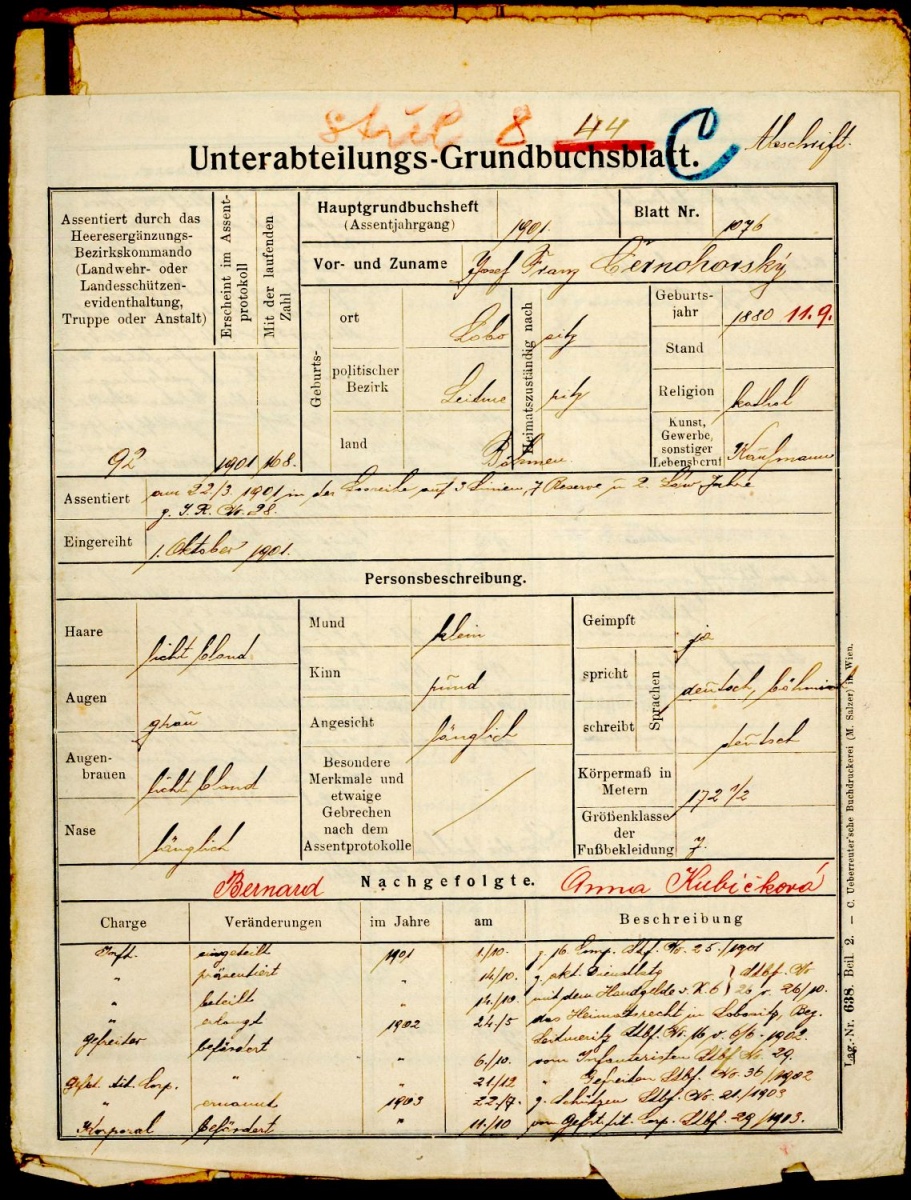 44
C
Abschrift.
Unterabteilungs-Grundbuchsblatt.
Assentiert durch das
Heeresergänzungs-
Bezirkskommando
(Landwehr- oder
Landesschützen-
evidenthaltung,
Truppe oder Anstalt)
92
Erscheint im Assent-
protokoll
1901
Mit der laufenden
Zahl
168.
Hauptgrundbuchsheft
(Assentjahrgang)
1901.
Blatt Nr.
1076
Vor- und Zuname
Josef Franz Černohorský
Geburts-
ort
Lobo
politischer
Bezirk
Leitme
land
Böhmen
Heimatszuständig nach
sitz
ritz
Geburts-
jahr
1880 11.9.
Stand
Religion
kathol
Kunst,
Gewerbe,
sonstiger
Lebensberuf
Kaufmann
Assentiert
am 22/3. 1901 in der auf 3 Linien, 7 Reserve u 2. Low. Jahre
z. I. R. Nr. 28.
Eingereiht
1. Oktober 1901.
Personsbeschreibung.
Haare
licht blond
Augen
grau
Augen-
brauen
licht blond
Nase
länglich
Mund
klein
Kinn
rund
Angesicht
länglich
Besondere
Merkmale und
etwaige
Gebrechen
nach dem
Assentprotokolle
Geimpft
ja
spricht
Sprachen
deutsch, böhmisch
schreibt
deutsch
Körpermaß in
Metern
172 1/2
Größenklasse
der
Fußbekleidung
7.
Bernard Nachgefolgte. Anna Kubíčková
Charge Veränderungen im Jahre am Beschreibung
Inft. eingeteilt 1901 1/10. z. 16. Comp. Stbf. Nr. 25./1901
" präsentiert " 14/10. z. akt. Dienstltg } Stbf. Nr
" beteilt 14/10. mit dem Handgelde v. K. 6 26 v. 26/10.
" erlangt 1902 24/5 das Heimatsrecht in Lobositz, Bez.
Leitmeritz Stbf. Nr. 16 v. 6/6. 1902.
Gefreiter befördert " 6./10. vom Infanteristen Stbf. Nr. 29.
Gefrt. tit. Corp. " " 21/12 " Gefreiten Stbf. Nr. 36/1902
" ernannt 1903 22/7. z. Schützen Stbf. Nr. 21/1903
Korporal befördert " 11/10 vom Gefrt. tit. Corp. Stbf. 29/1903.
Lag.-Nr. 638. Beil 2. — C. Ueberreuter'sche Buchdruckerei (M. Salzer) in Wien.